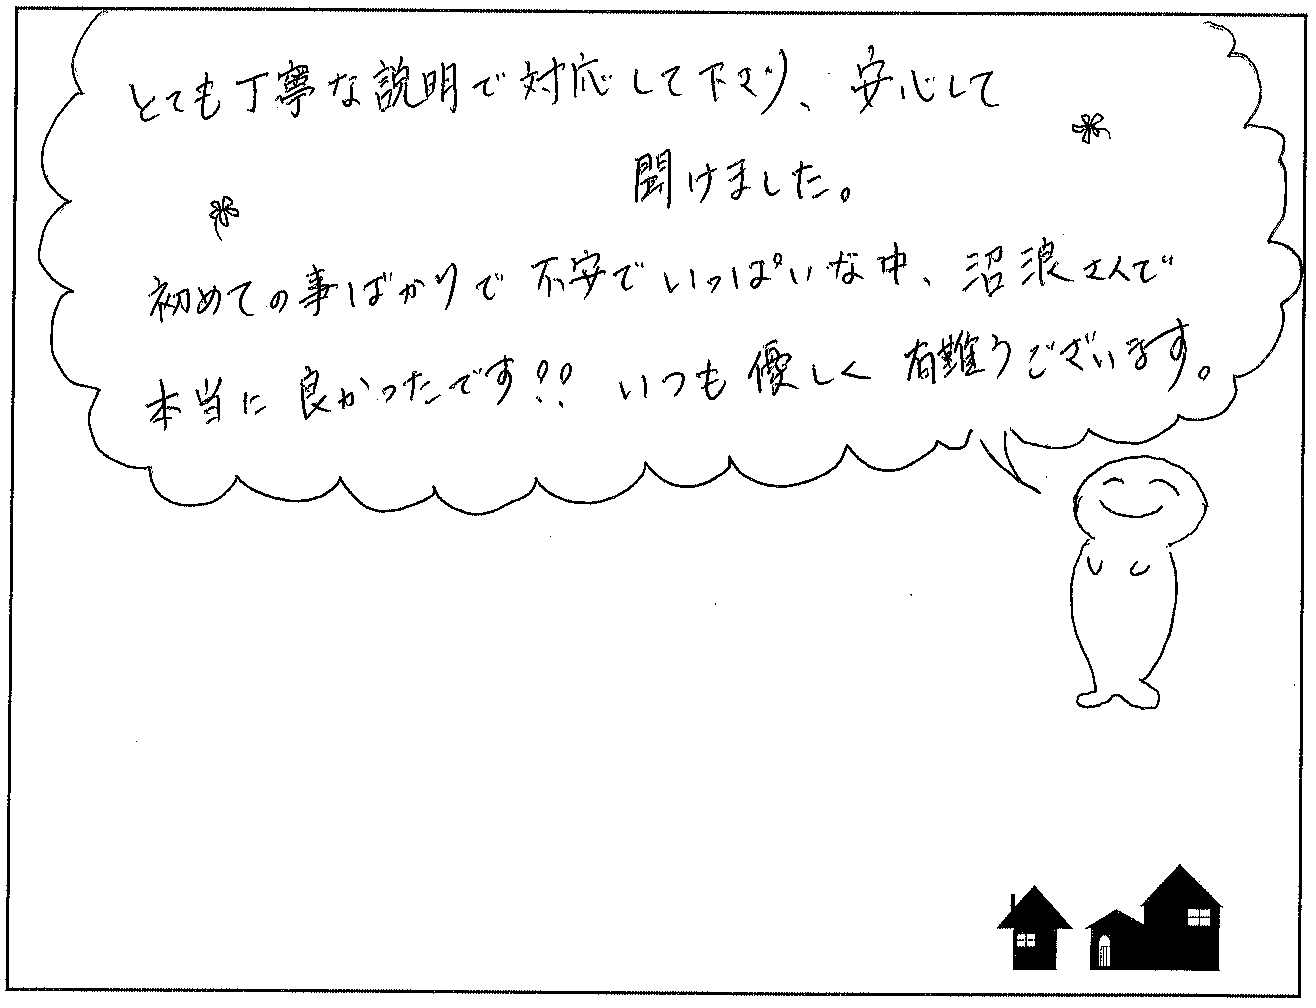 とても丁寧な説明で対応して下さり、安心して
聞けました。
初めての事ばかりで不安でいっぱいな中、沼浪さんで
本当に良かったです!! いつも優しく有難うございます。